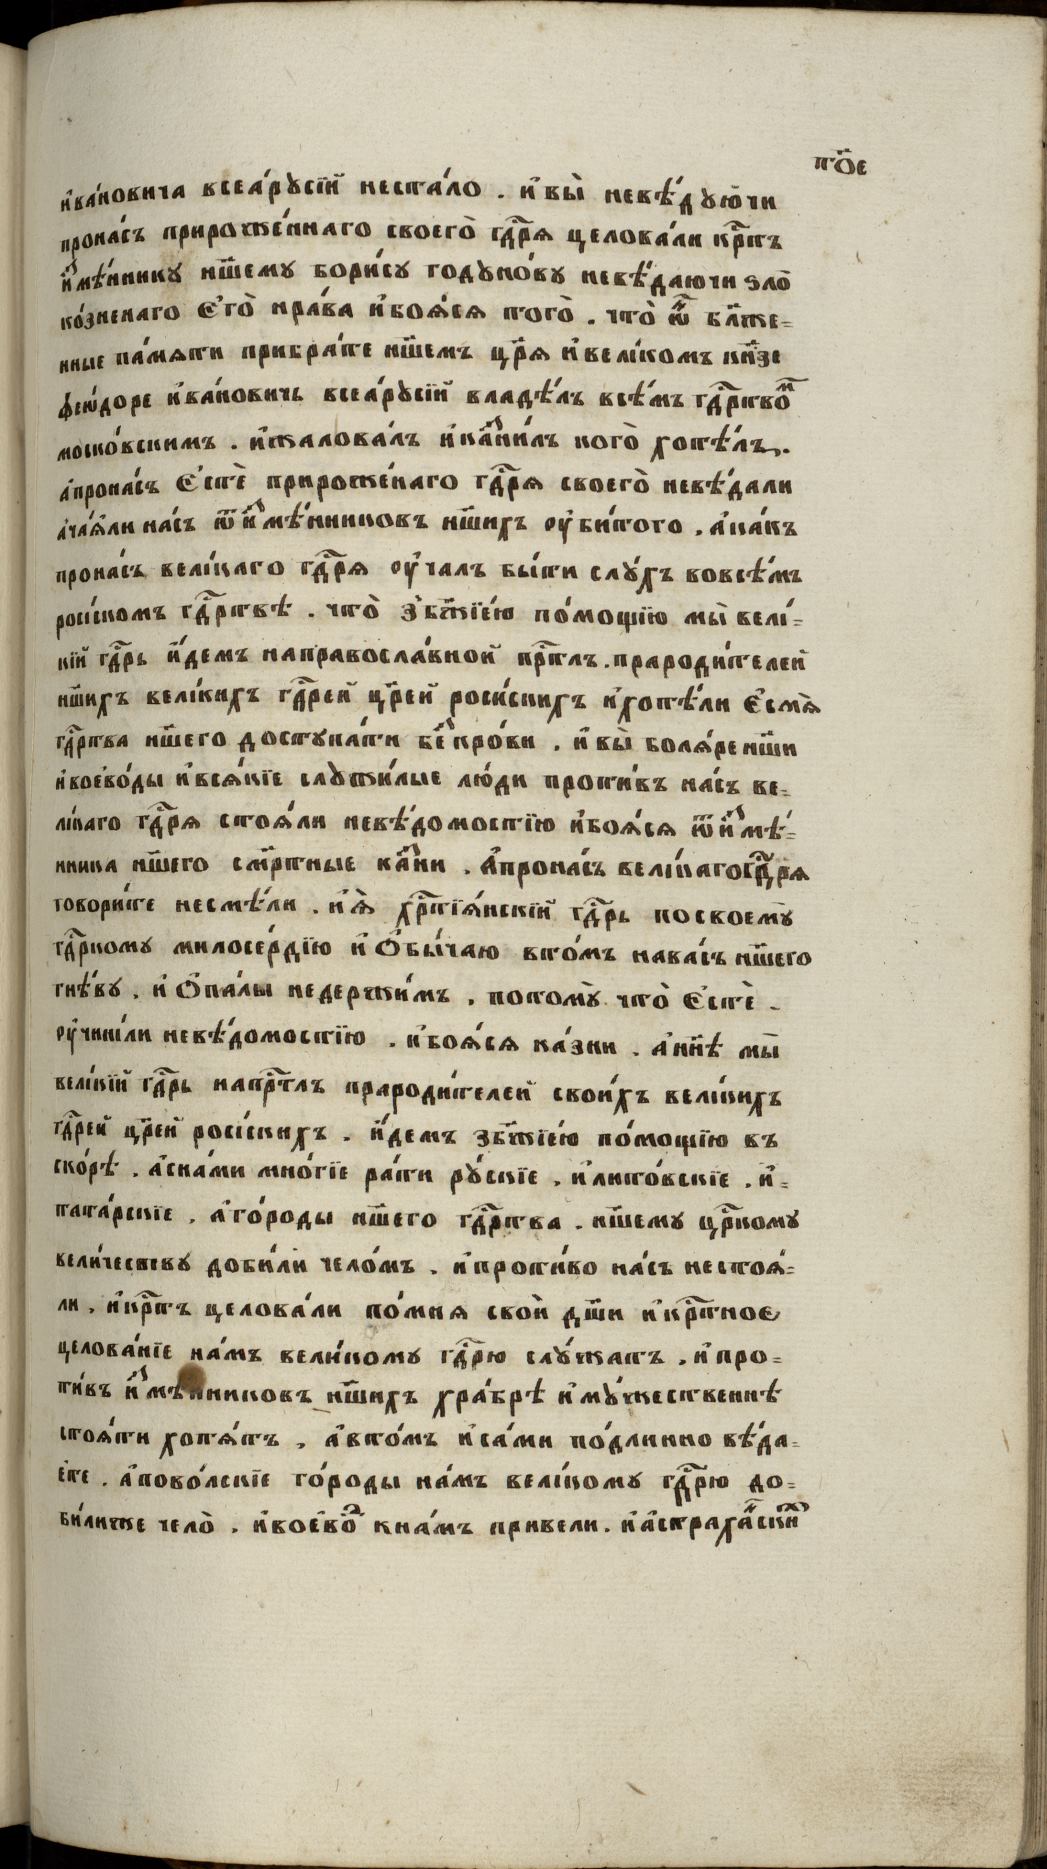 пѻ҃е
и҆ва́новича всеа́рꙋсі́й неста́ло . и҆ вы̀ невѣ́дꙋючи
прона́съ прироже́ннаго своего̀ гдⷭ҇рѧ целова́ли крⷭ҇тъ
и҆ꙁмѣ́ннику н҃шемꙋ бори́сꙋ годꙋно́вꙋ невѣ́даючи ѕло
ко́зненаго є҆го̀ нра́ва и҆боѧ́сѧ того̀ . что̀ ѿ бл҃же-
нные па́мѧти прибра́те н҃шемъ цр҃ѧ и҆вели́комъ кн҃зе
ѳео́доре и҆ва́новичь всеа́рꙋсі́й владѣ́лъ всѣ́мъ гдⷭ҇рствоⷨ
моско́вскимъ . и҆жаловалъ и҆каꙁни́лъ кого̀ хотѣ́лъ .
а҆прона́съ є҆стѐ прироже́наго гдⷭ҇рѧ своего̀ невѣ́дали
а҆ча́ѧли на́съ ѿи҆ꙁмѣ́нниковъ н҃шихъ ᲂу҆би́того . а҆ка́къ
прона́съ вели́каго гдⷭ҇рѧ ᲂу҆ча́лъ бы́ти слꙋ́хъ вовсѣ́мъ
росі́скомъ гдⷭ҇рствѣ . что̀ з̾бж҃їею по́мощїю мы̀ вели́-
кїй гдⷭ҇рь и҆́демъ направосла́вной прⷭ҇тлъ . прароди́телей
н҃шихъ вели́кихъ гдⷭ҇рей цр҃ей роси́скихъ и҆хотѣ́ли є҆смѧ̀
гдⷭ҇рства н҃шего достꙋпа́ти беꙁкро́ви . и҆ вы̀ болѧ́ре н҃ши
и҆воево́ды и҆всѧ́кїе слꙋжи́лые лю́ди проти́въ на́съ ве-
ли́каго гдⷭ҇рѧ стоѧ́ли невѣ́домостїю и҆боѧ́сѧ ѿи҆ꙁмѣ́-
нника н҃шего сме́ртные каꙁни . а҆прона́съ вели́каго гдⷭ҇рѧ
говори́те несмѣ́ли . и҆ ѧ҆̀ хрⷭ҇тїѧ́нскїй гдⷭ҇рь посвоемꙋ̀
гдⷭ҇ркомꙋ милосе́рдїю и҆ ѻ҆бы́чаю вто́мъ нава́съ н҃шего
гнѣ́вꙋ . и҆ ѻ҆па́лы недержи́мъ . потомꙋ̀ что̀ є҆стѐ .
ᲂу҆чини́ли невѣ́домостїю . и҆боѧ́сѧ ка́зни . а҆ нн҃ѣ мы̀
вели́кїй гдⷭ҇рь напрⷭ҇тлъ прароди́телей свои́хъ вели́кихъ
гдⷭ҇рей цр҃ей росі́скихъ . и҆́демъ з̾бж҃їею по́мощїю въ
ско́рѣ . а҆сна́ми мно́гїе ра́ти рꙋ́скїе . и҆лито́вскїе . и҆-
тата́рскїе . а҆го́роды н҃шего гдⷭ҇рства . н҃шемꙋ црⷭ҇комꙋ
вели́чествꙋ доби́ли чело́мъ . и҆проти́во на́съ нестоѧ́-
ли . и҆крⷭ҇тъ целова́ли по́мнѧ своѝ дш҃и и҆крⷭ҇тное
целова́нїе на́мъ вели́комꙋ гдⷭ҇рю слꙋ́жатъ . и҆про-
тивъ и҆ꙁмѣ́нниковъ н҃шихъ хра́брѣ и҆мꙋ́жественнѣ
стоѧ́ти хотѧ́тъ . а҆вто́мъ и҆са́ми по́длинно вѣ́да-
ете . а҆пово́лскїе го́роды на́мъ вели́комꙋ гдⷭ҇рю до-
би́лиже чело̀ . и҆воево́ⷣ кна́мъ привели . и҆а҆страха́ⷩскиⷯ